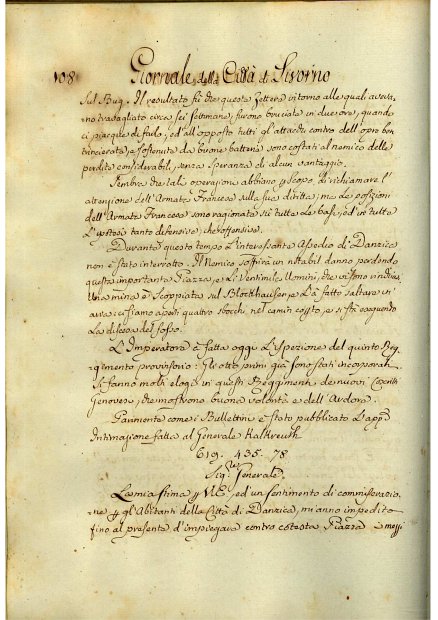 108 Giornale della Città di Livorno
Sul Bug. Il resultato fù che queste Zattere intorno alle quali aveva-
no travagliato circa sei settimane, furono bruciate in due ore, quando
ci piacque di farlo; ed all'opposto tutti gl'attacchi contro dell'opre ben
trincierate, e sostenute da buone batterie sono costati al nemico delle
perdite considerabili, senza speranza di alcun vantaggio.
Sembra che tali operazioni abbiano p scopo, di richiamare l'
attenzione dell'Armata Francese sulla sua diritta; ma le posizioni
dell'Armata Francese sono ragionate sù tutte le basi, ed in tutte
L'ipotesi tanto difensive, che offensive.
Durante questo tempo L'interessante Assedio di Danzica
non è stato interrotto. Il Nemico soffrirà un notabil danno perdendo
questa importante Piazza, e i Ventimila Uomini, che vi sono rinchiusi.
Una mina è scoppiata sul Blockhausen, e l'à fatto saltare in
aria: ci siamo aperti quattro sbocchi nel camin coperto, e si stà eseguendo
La discesa del fosso.
L'Imperatore à fatto oggi L'ispezione del quinto Reg-
gimento provvisorio: Gl'otto primi già sono stati incorporati.
Si fanno molti elogj in questi Reggimenti de nuovi Coscritti
Genovesi, che mostrono buona volontà e dell'Ardore.
Parimente come i Bullettini è stato pubblicato L'app.
Intimazione fatta al Generale Kalkreuth
619. 435. 78
Sig.re Generale.
La mia stima p V.E., ed un sentimento di commiserazio-
ne p gl'Abitanti della Città di Danzica, m'anno impedito
fino al presente d'impiegare contro cotesta Piazza i mezzi